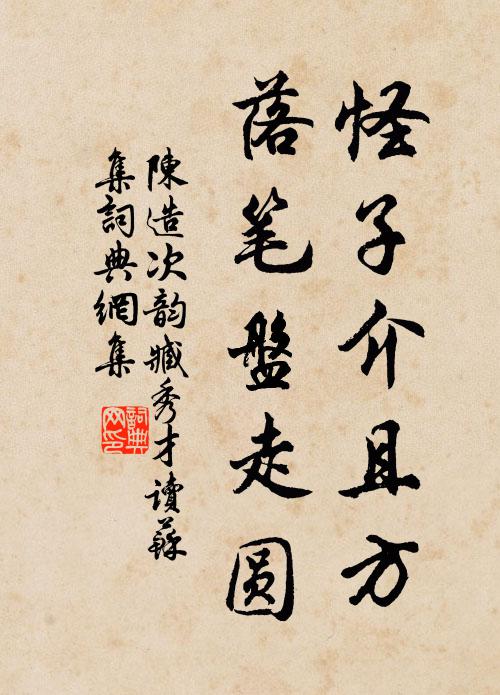 怪子介且方
落笔盤走圆
陳造次韵臧秀才讀蘇
集詞典網集
詞典
网印